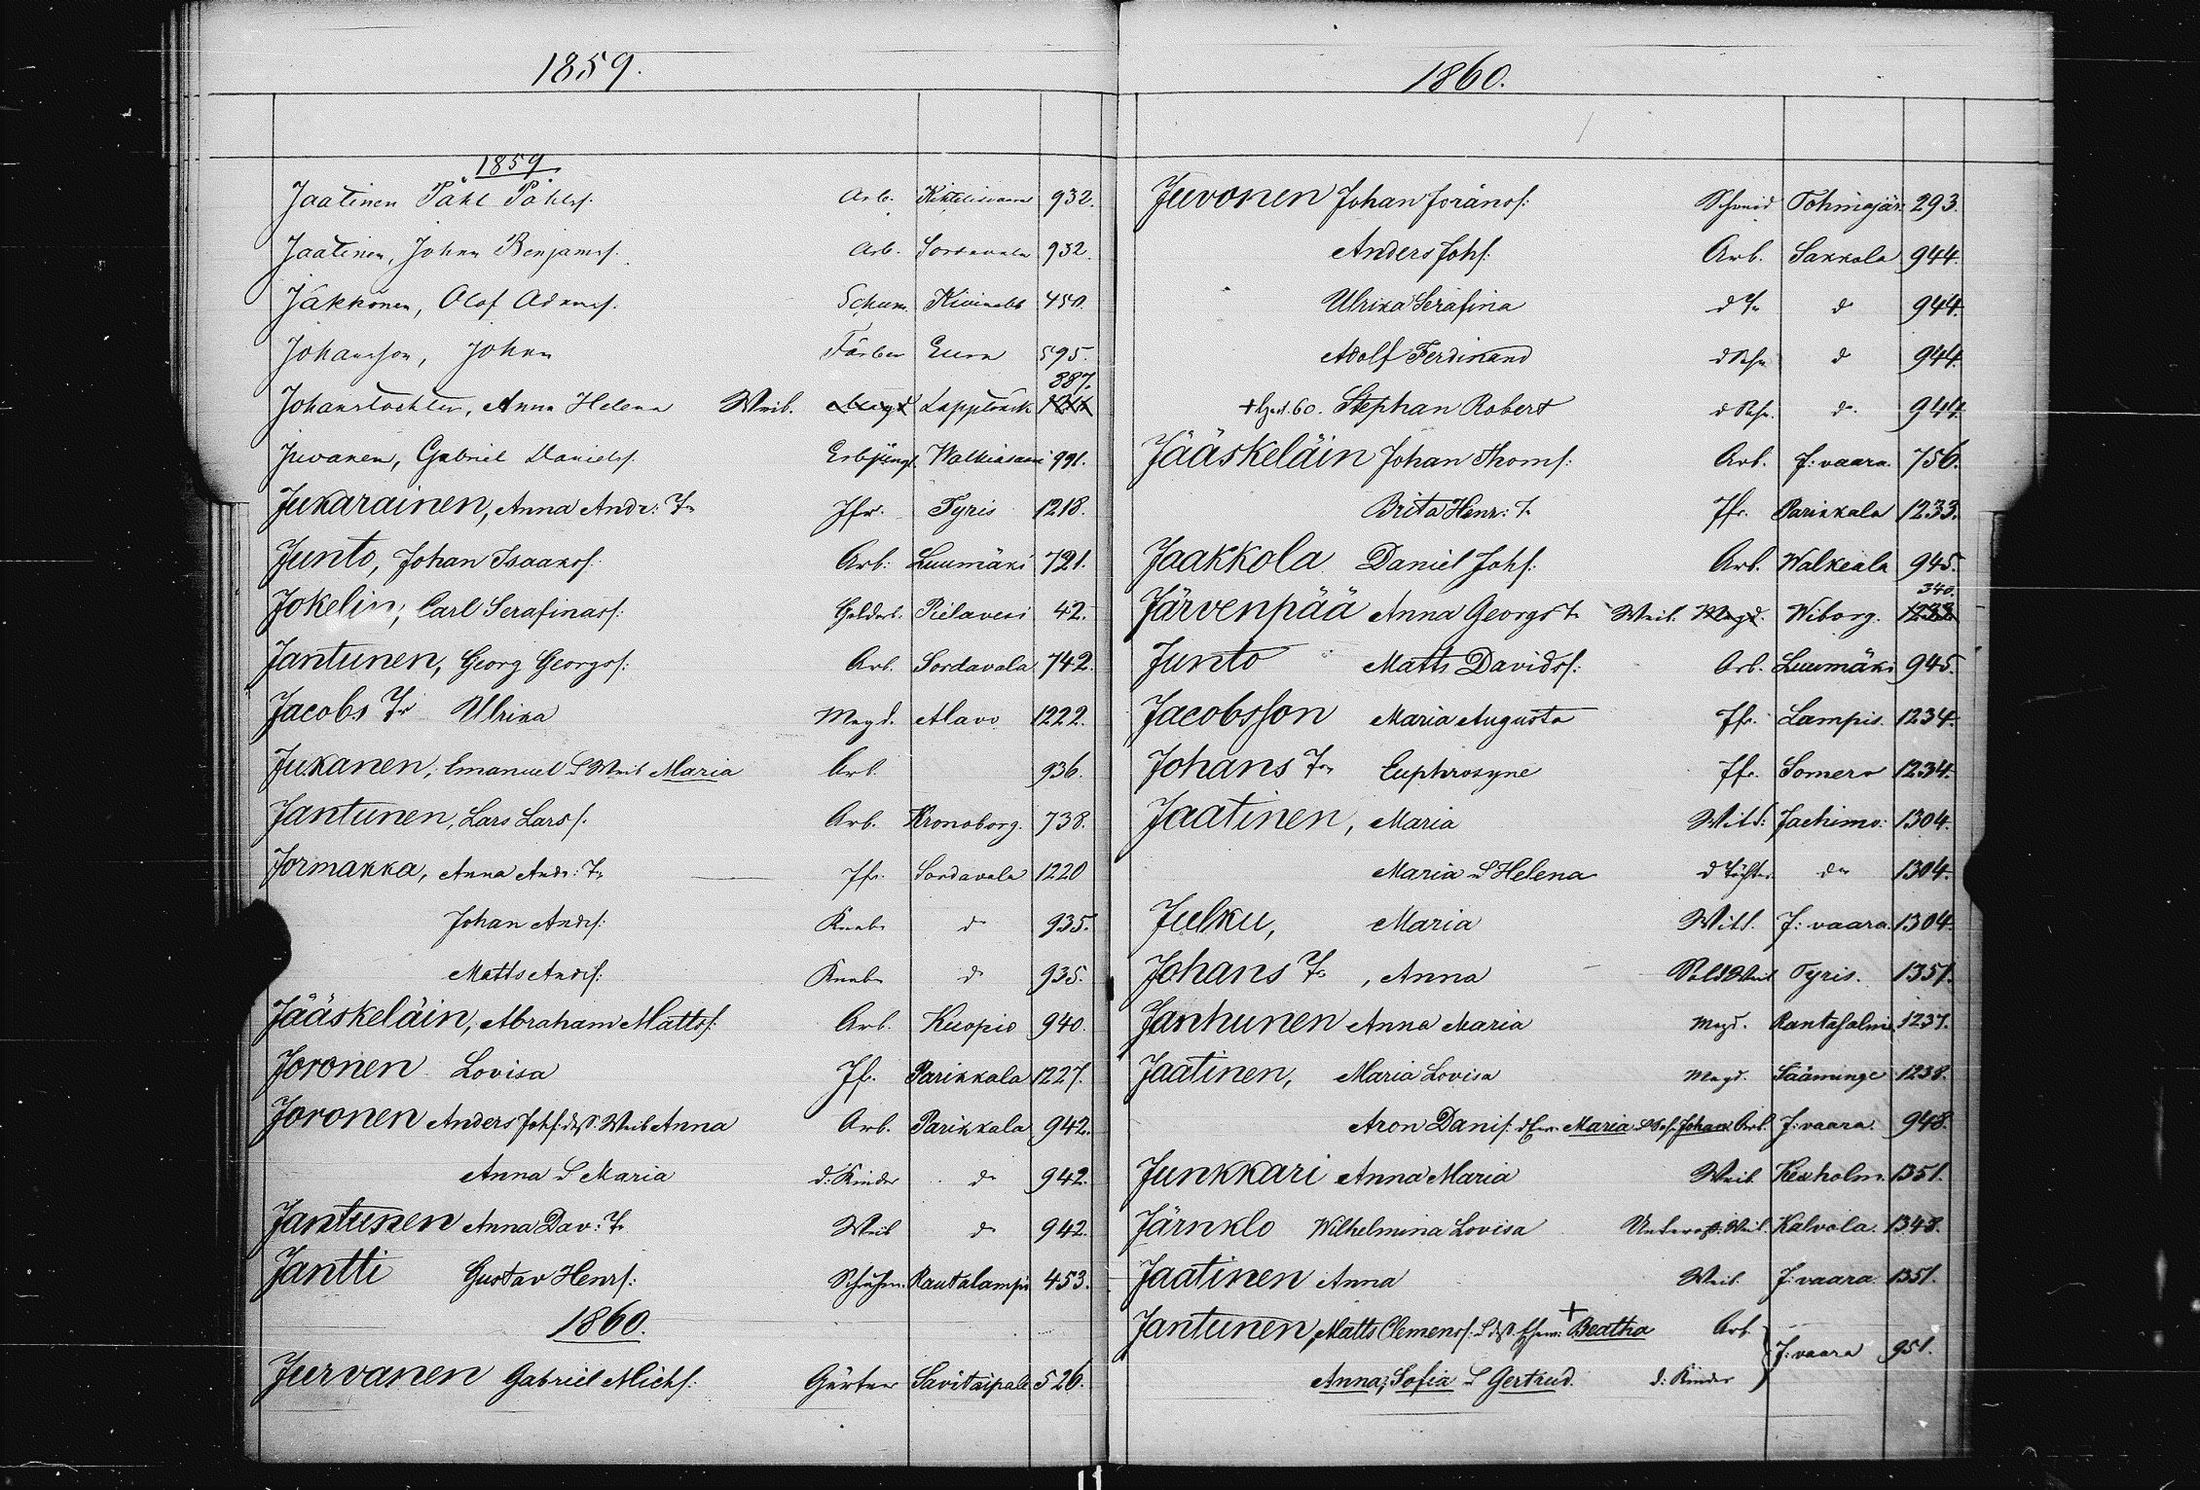 1859.
1859
Jaatinen Påhl Påhlss. Arb. 932.
Jaatinen, Johan Benjamss. Arb. Sordavala 932.
Jäkkönen, Olof Adamss. Schum. Kivinebb 450.
Johansson, Johan Färber Eura 595.
887.
Johanstochter, Anna Helena Weib. Magd Lappträsk
Juvanen, Gabriel Daniels. 991.
Jukarainen, Anna Andr: Tr Jfr. Tyris 1218.
Junto, Johan Isaaksf. Arb: Luumäki 721.
Jokelin, Carl Serafinasf: Pielavesi 42.
Jantunen, Georg Georgsf: Arb. Sordavala 742.
Jacobs Tr Ulrika Magd. Alavo 1222.
Jukanen, Emanuel & Weib Maria Arb. 936.
Jantunen, Lars Larsf. Arb. Kronoborg. 738.
Jormakka, Anna Andr: Tr Jfr. Sordavala 1220
Johan Andrf: Knabe do 935.
Matts Andrf: Knabe do 935.
Jääskeläin, Abraham Mattsf: Arb. Kuopio 940.
Joronen Lovisa Jfr. Parikkala 1227.
Joronen Anders Johf: dess. Weib Anna Arb. Parikkala 942.
Anna & Maria d: Kinder do 942.
Jantunen Anna Dav: Tr Weib do 942.
Jantti Gustav Henrf: Schuhm. Rautalampi 453.
1860.
Jurvanen Gabriel Michf: Gärtner Savitaipale 526.
1860.
Juvonen Johan Joränsf: Schmid Tohmajär: 293.
Anders Johf: Arb. Sakkola 944.
Ulrika Serafina d Tr do 944.
Adolf Ferdinand d Sohn do 944.
60. Stephan Robert d Sohn do 944.
Jääskeläin Johan Thomf: Arb. J: vaara. 756.
Brita Henr: Tr Jfr. Parikkala 1233.
Jaakkola Daniel Johf: Arb. Walkeala 945.
340.
Järvenpää Anna Georgs Tr Weib. Magd. Wiborg. 1233.
Junto Matts Davidsf: Arb. Luumäki 945.
Jacobsson Maria Augusta Jfr. Lampis. 1234.
Johans Tr Euphrosyne Jfr. Somero 1234.
Jaatinen, Maria Jachimv: 1304.
Maria & Helena d Töchter do 1304.
Julku, Maria J: vaara. 1304.
Johans Tr, Anna Sold Weib Tyris. 1351.
Janhunen Anna Maria Magd. Rantasalmi. 1237.
Jaatinen, Maria Lovisa Magd. Sääminge 1238.
Aron Danif: Maria & Johan Arb. J: vaara. 948.
Junkkari Anna Maria Weib. Kexholm. 1351.
Järnklo Wilhelmina Lovisa Unteroff: Weib. Kalvola. 1348.
Jaatinen Anna Weib. J: vaara 1351.
Jantunen, Matts Clemensf: & dess + Beatha Arb.
J: vaara 951.
Anna, Sofia & Gertrud. d: Kinder
11